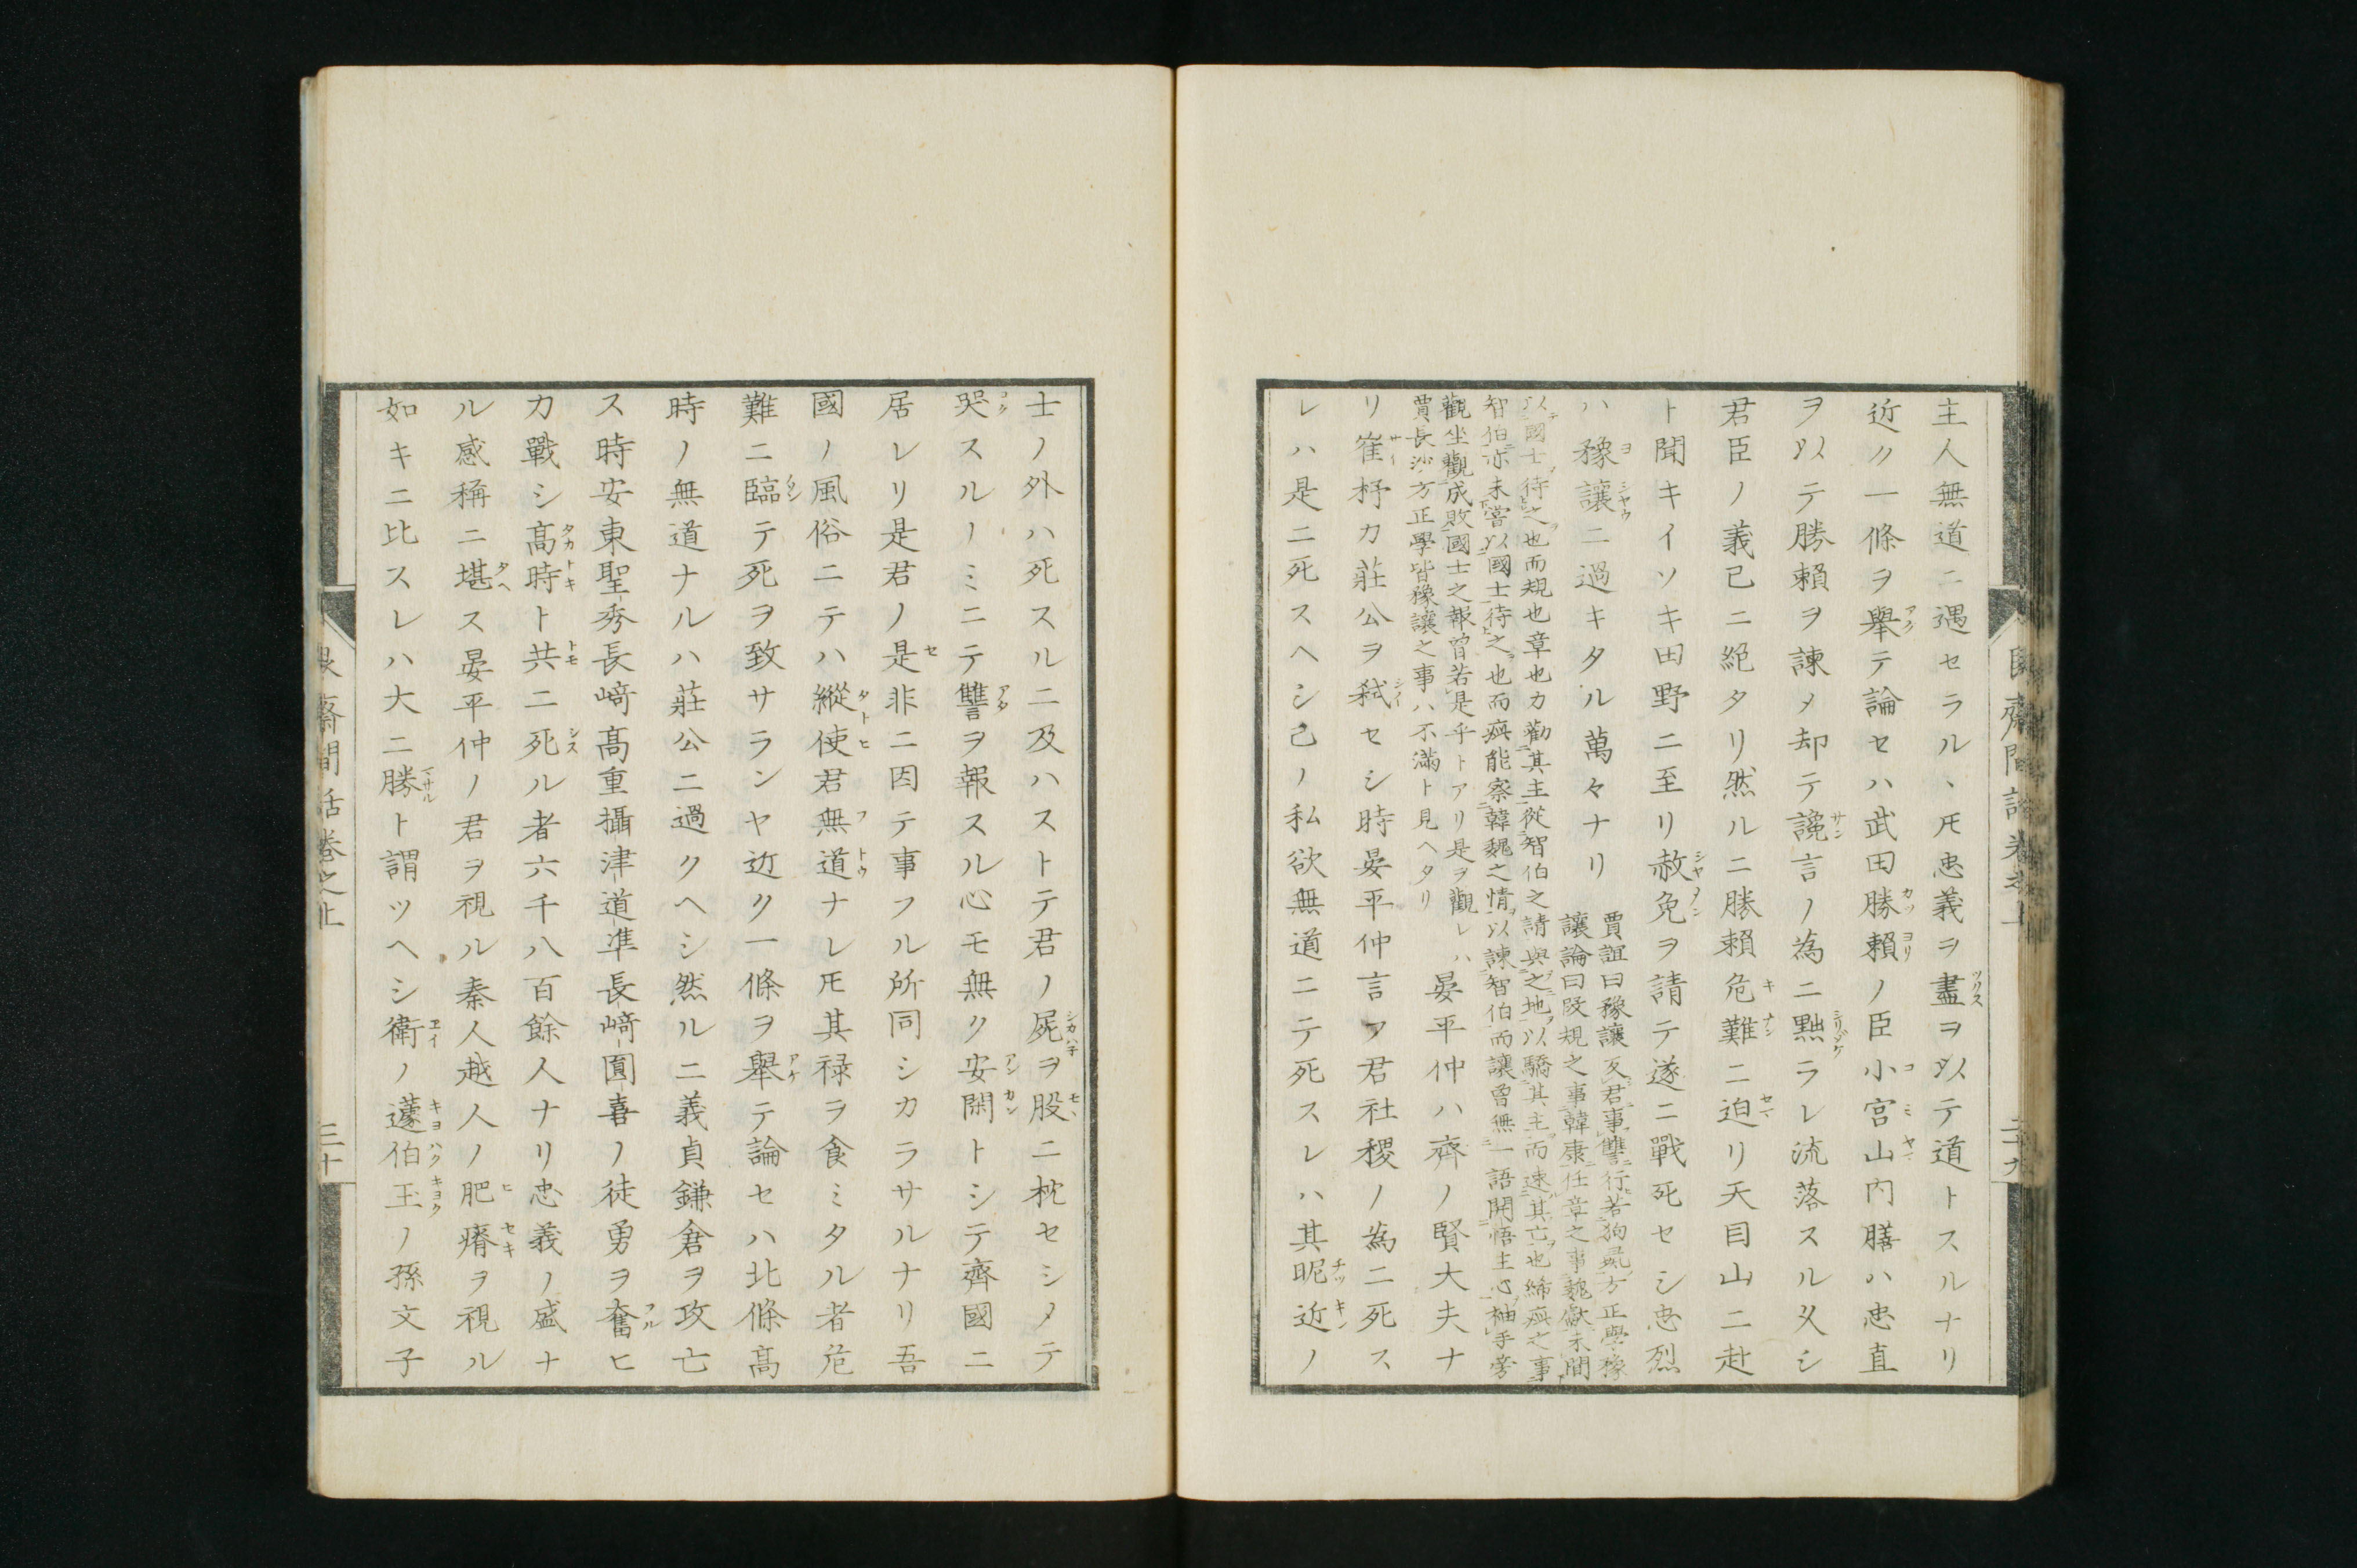 主人無道ニ遇セラル、𪜈忠義ヲ盡ヲ以テ道トスルナリ
近ク一條ヲ舉テ論セハ武田勝賴ノ臣小宮山内膳ハ忠直
ヲ以テ勝賴ヲ諫メ却テ讒言ノ為ニ黜ラレ流落スル又シ
君臣ノ義已ニ絕タリ然ルニ勝賴危難ニ迫リ天目山ニ赴
ト聞キイソキ田野ニ至リ赦免ヲ請テ遂ニ戰死セシ忠烈
ハ豫讓ニ過キタル萬々ナリ
賈誼曰豫讓反君事讐行若狗彘方正學豫
讓論曰段規之事韓康任章之事魏獻未聞
以國士待之也而規也章也力勸其主從智伯之請與之地以驕其主而速其亡也絺疵之事
智伯亦未嘗以國士待之也而疵能察韓魏之情以諫智伯而讓曾無一語開悟主心袖手旁
觀坐觀成敗國士之報曾若是乎トアリ是ヲ觀レハ
賈長沙方正學皆豫讓之事ハ不滿ト見ヘタリ
晏平仲ハ齊ノ賢大夫ナ
リ崔杼カ莊公ヲ弑セシ時晏平仲言フ君社稷ノ為ニ死ス
レハ是ニ死スヘシ己ノ私欲無道ニテ死スレハ其昵近ノ
士ノ外ハ死スルニ及ハストテ君ノ屍ヲ股ニ枕セシメテ
哭スルノミニテ讐ヲ報スル心モ無ク安閑トシテ齊國ニ
居レリ是君ノ是非ニ因テ事フル所同シカラサルナリ吾
國ノ風俗ニテハ縱使君無道ナレ𪜈其祿ヲ食ミタル者危
難ニ臨テ死ヲ致サランヤ近ク一條ヲ舉テ論セハ北條高
時ノ無道ナルハ莊公ニ過クヘシ然ルニ義貞鎌倉ヲ攻亡
ス時安東聖秀長﨑髙重攝津道準長﨑圓喜ノ徒勇ヲ奮ヒ
力戰シ髙時ト共ニ死ル者六千八百餘人ナリ忠義ノ盛ナ
ル感稱ニ堪ス晏平仲ノ君ヲ視ル秦人越人ノ肥瘠ヲ視ル
如キニ比スレハ大ニ勝ト謂ツヘシ衛ノ蘧伯玉ノ孫文子
齋間話卷之上
三十